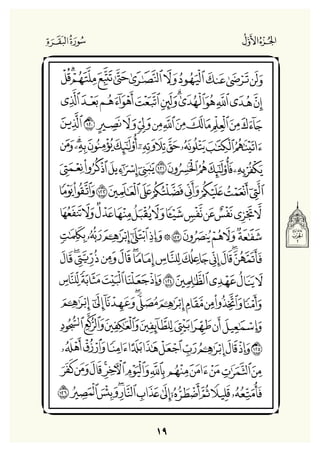 سُورَةُ البَقَرَةِ الجُزْءُ الأَوَّلُ
وَلَن تَرْضَىٰ عَنكَ ٱلْيَهُودُ وَلَا ٱلنَّصَٰرَىٰ حَتَّىٰ تَتَّبِعَ مِلَّتَهُمْ ۗ قُلْ
إِنَّ هُدَى ٱللَّهِ هُوَ ٱلْهُدَىٰ ۗ وَلَئِنِ ٱتَّبَعْتَ أَهْوَآءَهُم بَعْدَ ٱلَّذِى
جَآءَكَ مِنَ ٱلْعِلْمِ ۙ مَا لَكَ مِنَ ٱللَّهِ مِن وَلِىٍّ وَلَا نَصِيرٍ ١٢٠ ٱلَّذِينَ
ءَاتَيْنَٰهُمُ ٱلْكِتَٰبَ يَتْلُونَهُۥ حَقَّ تِلَاوَتِهِۦٓ أُو۟لَٰٓئِكَ يُؤْمِنُونَ بِهِۦ ۗ وَمَن
يَكْفُرْ بِهِۦ فَأُو۟لَٰٓئِكَ هُمُ ٱلْخَٰسِرُونَ ١٢١ يَٰبَنِىٓ إِسْرَٰٓءِيلَ ٱذْكُرُوا۟ نِعْمَتِىَ
ٱلَّتِىٓ أَنْعَمْتُ عَلَيْكُمْ وَأَنِّى فَضَّلْتُكُمْ عَلَى ٱلْعَٰلَمِينَ ١٢٢ وَٱتَّقُوا۟ يَوْمًا
لَّا تَجْزِى نَفْسٌ عَن نَّفْسٍ شَيْـًٔا وَلَا يُقْبَلُ مِنْهَا عَدْلٌ وَلَا تَنفَعُهَا
شَفَٰعَةٌ وَلَا هُمْ يُنصَرُونَ ١٢٣ ۞ وَإِذِ ٱبْتَلَىٰٓ إِبْرَٰهِـۧمَ رَبُّهُۥ بِكَلِمَٰتٍ
فَأَتَمَّهُنَّ ۖ قَالَ إِنِّى جَاعِلُكَ لِلنَّاسِ إِمَامًا ۖ قَالَ وَمِن ذُرِّيَّتِى ۖ قَالَ
لَا يَنَالُ عَهْدِى ٱلظَّٰلِمِينَ ١٢٤ وَإِذْ جَعَلْنَا ٱلْبَيْتَ مَثَابَةً لِّلنَّاسِ
وَأَمْنًا وَٱتَّخِذُوا۟ مِن مَّقَامِ إِبْرَٰهِـۧمَ مُصَلًّى ۖ وَعَهِدْنَآ إِلَىٰٓ إِبْرَٰهِـۧمَ
وَإِسْمَٰعِيلَ أَن طَهِّرَا بَيْتِىَ لِلطَّآئِفِينَ وَٱلْعَٰكِفِينَ وَٱلرُّكَّعِ ٱلسُّجُودِ
١٢٥ وَإِذْ قَالَ إِبْرَٰهِـۧمُ رَبِّ ٱجْعَلْ هَٰذَا بَلَدًا ءَامِنًا وَٱرْزُقْ أَهْلَهُۥ
مِنَ ٱلثَّمَرَٰتِ مَنْ ءَامَنَ مِنْهُم بِٱللَّهِ وَٱلْيَوْمِ ٱلْـَٔاخِرِ ۖ قَالَ وَمَن كَفَرَ
فَأُمَتِّعُهُۥ قَلِيلًا ثُمَّ أَضْطَرُّهُۥٓ إِلَىٰ عَذَابِ ٱلنَّارِ ۖ وَبِئْسَ ٱلْمَصِيرُ ١٢٦
١٩